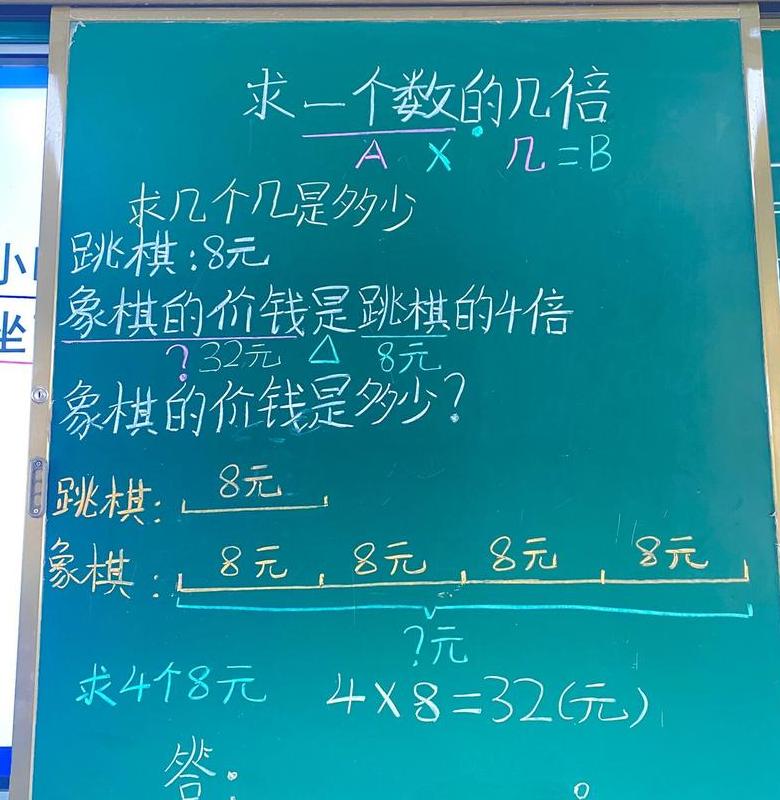 求一个数的几倍
A × 几=B
求几个几是多少
跳棋:8元
象棋的价钱是跳棋的4倍
? 32元 △ 8元
象棋的价钱是多少?
8元
跳棋:
象棋: 8元 8元 8元 8元
?元
求4个8元 4×8=32(元)
答: 。
小
坐